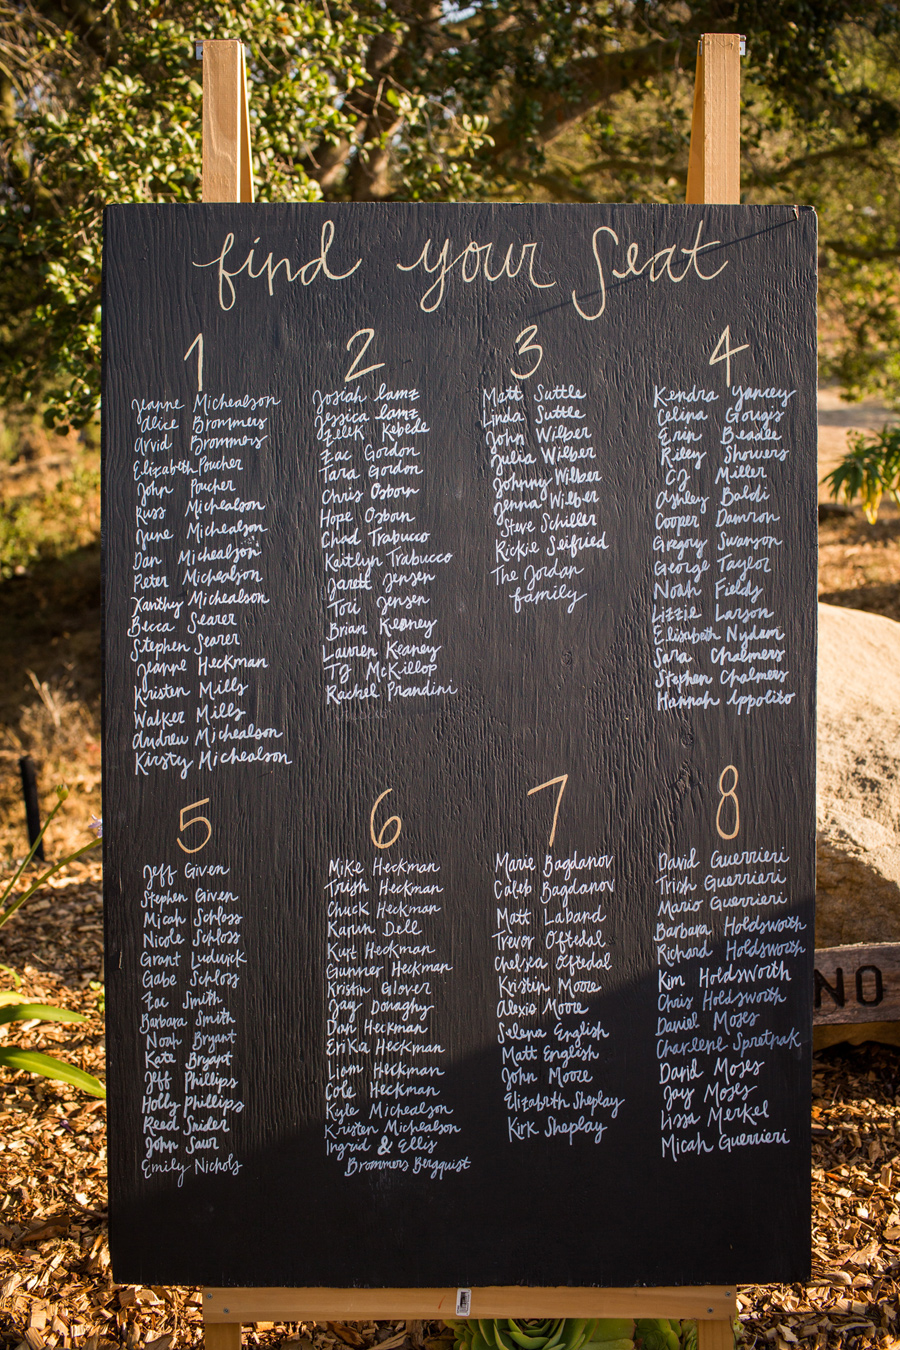 find your seat
1
Jeanne Michealson
Alice Brommers
Arvid Brommers
Elizabeth Poucher
John Poucher
Russ Michealson
June Michealson
Dan Michealson
Peter Michealson
Xanthy Michealson
Becca Searer
Stephen Searer
Jeanne Heckman
Kristen Mills
Walker Mills
Andrew Michealson
Kirsty Michealson
2
Josiah
Jessica
Zelik Kebede
Zac Gordon
Tara Gordon
Chris Osborn
Hope Osborn
Chad Trabucco
Kaitlyn Trabucco
Jarett Jensen
Tori Jensen
Brian Keaney
Lauren Keaney
TJ McKillop
Rachel Prandini
3
Matt Suttle
Linda Suttle
John Wilber
Julia Wilber
Johnny Wilber
Jenna Wilber
Steve Schiller
Rickie Seifried
The Jordan
family
4
Kendra Yancey
Celina Gougis
Erin Beadle
Riley Showers
CJ Miller
Ashley Baldi
Cooper Damron
Gregory Swanson
George Taylor
Noah Fields
Lizzie Larson
Elisabeth Nydam
Sara Chalmers
Stephen Chalmers
Hannah Ippolito
5
Jeff Given
Stephen Given
Micah Schloss
Nicole Schloss
Grant Ludwick
Gabe Schloss
Zac Smith
Barbara Smith
Noah Bryant
Kate Bryant
Jeff Phillips
Holly Phillips
Reed Snider
John Saur
Emily Nichols
6
Mike Heckman
Trish Heckman
Chuck Heckman
Karin Dell
Kurt Heckman
Gunner Heckman
Kristin Glover
Jay Donaghy
Dan Heckman
Erika Heckman
Liam Heckman
Cole Heckman
Kyle Michealson
Kristen Michealson
Ingrid & Ellis
Brommers Bergquist
7
Marie Bagdanov
Caleb Bagdanov
Matt Laband
Trevor Oftedal
Chelsea Oftedal
Kristin Moore
Alexis Moore
Selena English
Matt English
John Moore
Elizabeth Sheplay
Kirk Sheplay
8
David Guerrieri
Trish Guerrieri
Mario Guerrieri
Barbara Holdsworth
Richard Holdsworth
Kim Holdsworth
Chris Holdsworth
Daniel Moses
Charlene Spretnak
David Moses
Jay Moses
Lissa Merkel
Micah Guerrieri
NO